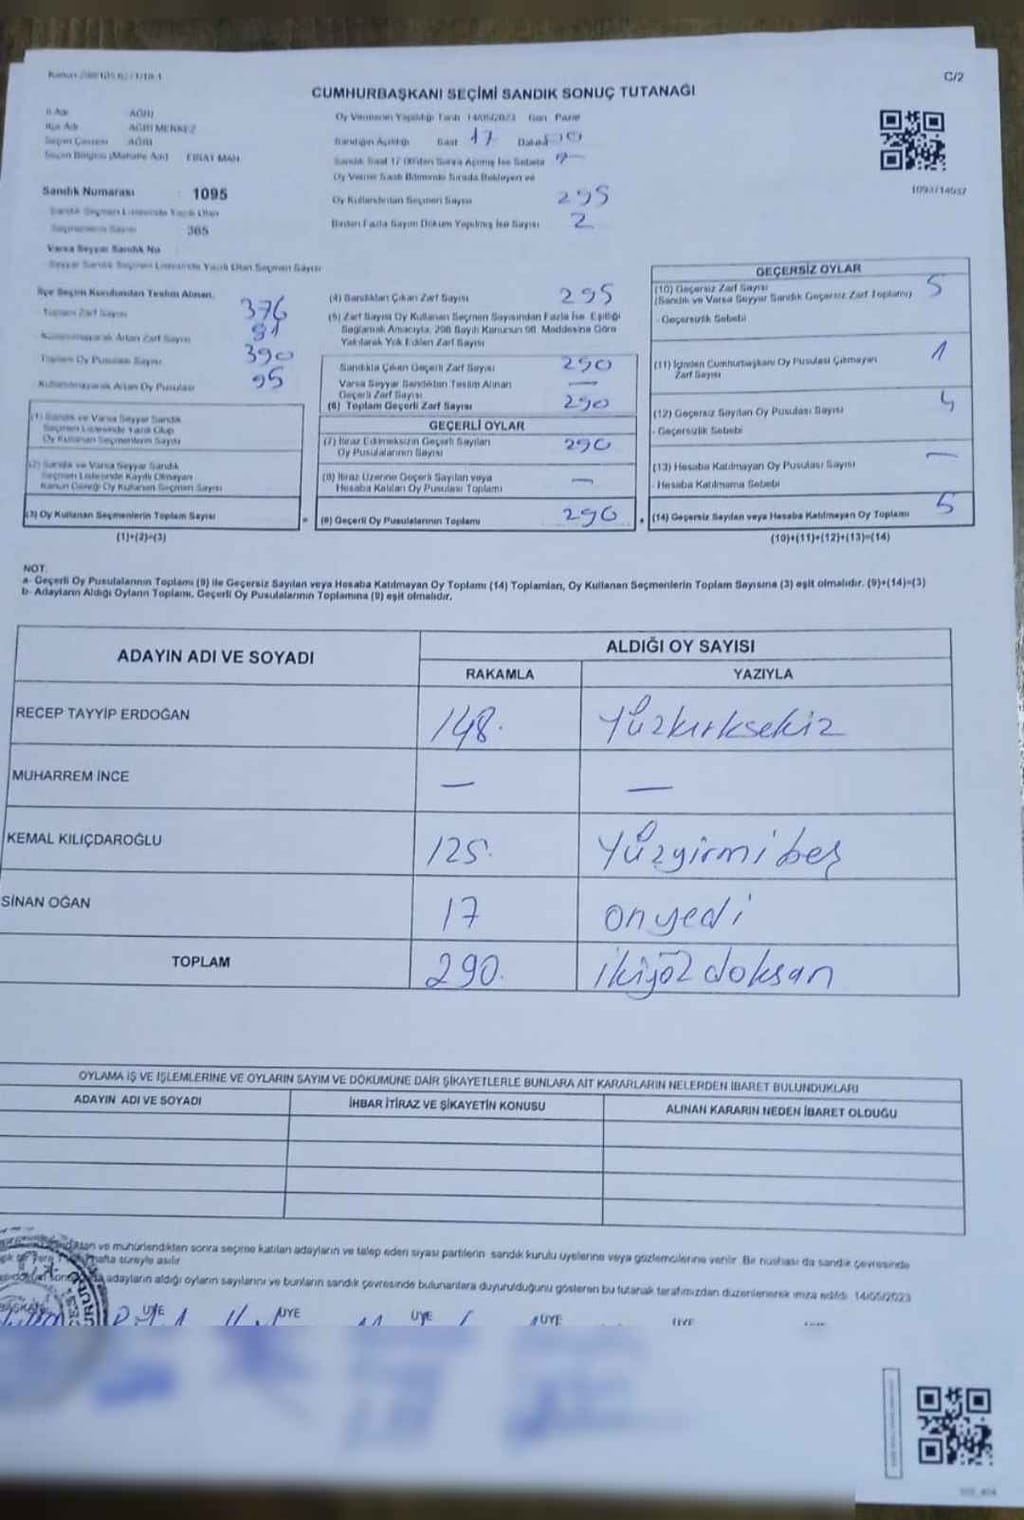 C/2
CUMHURBAŞKANI SEÇİMİ SANDIK SONUÇ TUTANAĞI
İl Adı AĞRI
İlçe Adı AĞRI MERKEZ
Seçim Çevresi AĞRI
Seçim Bölgesi (Mahalle Adı) FIRAT MAH.
Sandık Numarası 1095
Sandık Seçmen Listesinde Yazılı Olan
Seçmenlerin Sayısı 365
Varsa Seyyar Sandık No
Seyyar Sandık Seçmen Listesinde Yazılı Olan Seçmen Sayısı
Oy Vermenin Yapıldığı Tarih 14/05/2023 Gün Pazar
Sandığın Açıldığı Saat 17 Dakika
Sandık Saat 17.00'den Sonra Açılmış İse Sebebi
Oy Verme Saati Bitiminde Sırada Bekleyen ve
Oy Kullandırılan Seçmen Sayısı 295
Birden Fazla Sayım Döküm Yapılmış İse Sayısı 2
İlçe Seçim Kurulundan Teslim Alınan
Toplam Zarf Sayısı 376
Kullanılmayarak Artan Zarf Sayısı 81
Toplam Oy Pusulası Sayısı 390
Kullanılmayarak Artan Oy Pusulası 95
(1) Sandık ve Varsa Seyyar Sandık
Seçmen Listesinde Yazılı Olup
Oy Kullanan Seçmenlerin Sayısı
(2) Sandık ve Varsa Seyyar Sandık
Seçmen Listesinde Kayıtlı Olmayan
Kanun Gereği Oy Kullanan Seçmen Sayısı
(3) Oy Kullanan Seçmenlerin Toplam Sayısı
(1)+(2)=(3)
(4) Sandıktan Çıkan Zarf Sayısı 295
(5) Zarf Sayısı Oy Kullanan Seçmen Sayısından Fazla İse, Eşitliği
Sağlamak Amacıyla, 298 Sayılı Kanunun 98. Maddesine Göre
Yakılarak Yok Edilen Zarf Sayısı
Sandıkta Çıkan Geçerli Zarf Sayısı 290
Varsa Seyyar Sandıktan Teslim Alınan
Geçerli Zarf Sayısı —
(6) Toplam Geçerli Zarf Sayısı 290
GEÇERLİ OYLAR
(7) İtiraz Edilmeksizin Geçerli Sayılan
Oy Pusulalarının Sayısı 290
(8) İtiraz Üzerine Geçerli Sayılan veya
Hesaba Katılan Oy Pusulası Toplamı —
(9) Geçerli Oy Pusulalarının Toplamı 290
GEÇERSİZ OYLAR
(10) Geçersiz Zarf Sayısı 5
(Sandık ve Varsa Seyyar Sandık Geçersiz Zarf Toplamı)
- Geçersizlik Sebebi
(11) İçinden Cumhurbaşkanı Oy Pusulası Çıkmayan 1
Zarf Sayısı
(12) Geçersiz Sayılan Oy Pusulası Sayısı 4
- Geçersizlik Sebebi
(13) Hesaba Katılmayan Oy Pusulası Sayısı —
- Hesaba Katılmama Sebebi
(14) Geçersiz Sayılan veya Hesaba Katılmayan Oy Toplamı 5
(10)+(11)+(12)+(13)=(14)
NOT:
a- Geçerli Oy Pusulalarının Toplamı (9) ile Geçersiz Sayılan veya Hesaba Katılmayan Oy Toplamı (14) Toplamları, Oy Kullanan Seçmenlerin Toplam Sayısına (3) eşit olmalıdır. (9)+(14)=(3)
b- Adayların Aldığı Oyların Toplamı, Geçerli Oy Pusulalarının Toplamına (9) eşit olmalıdır.
ADAYIN ADI VE SOYADI
ALDIĞI OY SAYISI
RAKAMLA YAZIYLA
RECEP TAYYİP ERDOĞAN 148. Yüzkırksekiz
MUHARREM İNCE — —
KEMAL KILIÇDAROĞLU 125. Yüzyirmibeş
SİNAN OĞAN 17 onyedi
TOPLAM 290. ikiyüzdoksan
OYLAMA İŞ VE İŞLEMLERİNE VE OYLARIN SAYIM VE DÖKÜMÜNE DAİR ŞİKAYETLERLE BUNLARA AİT KARARLARIN NELERDEN İBARET BULUNDUKLARI
ADAYIN ADI VE SOYADI İHBAR İTİRAZ VE ŞİKAYETİN KONUSU ALINAN KARARIN NEDEN İBARET OLDUĞU
ve mühürlendikten sonra seçime katılan adayların ve talep eden siyasi partilerin sandık kurulu üyelerine veya gözlemcilerine verilir. Bir nüshası da sandık çevresinde
hafta süreyle asılır
adayların aldığı oyların sayılarını ve bunların sandık çevresinde bulunanlara duyurulduğunu gösteren bu tutanak tarafımızdan düzenlenerek imza edildi. 14/05/2023
BAŞKAN ÜYE ÜYE ÜYE ÜYE ÜYE